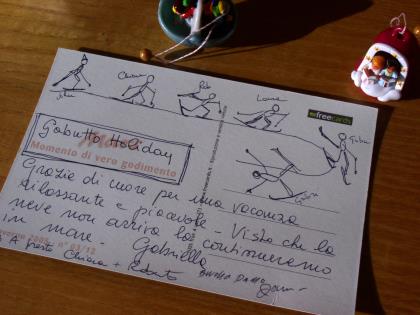 Chiara
Rob
Laura
freecards
Gabri
Gabutto Holiday
Momento di vero godimento
Gabri
Grazie di cuore per una vacanza
rilassante e piacevole - Visto che la
neve non arriva la continueremo
in mare -
Gabriella
n° 03/12
A presto Chiara + Roberto